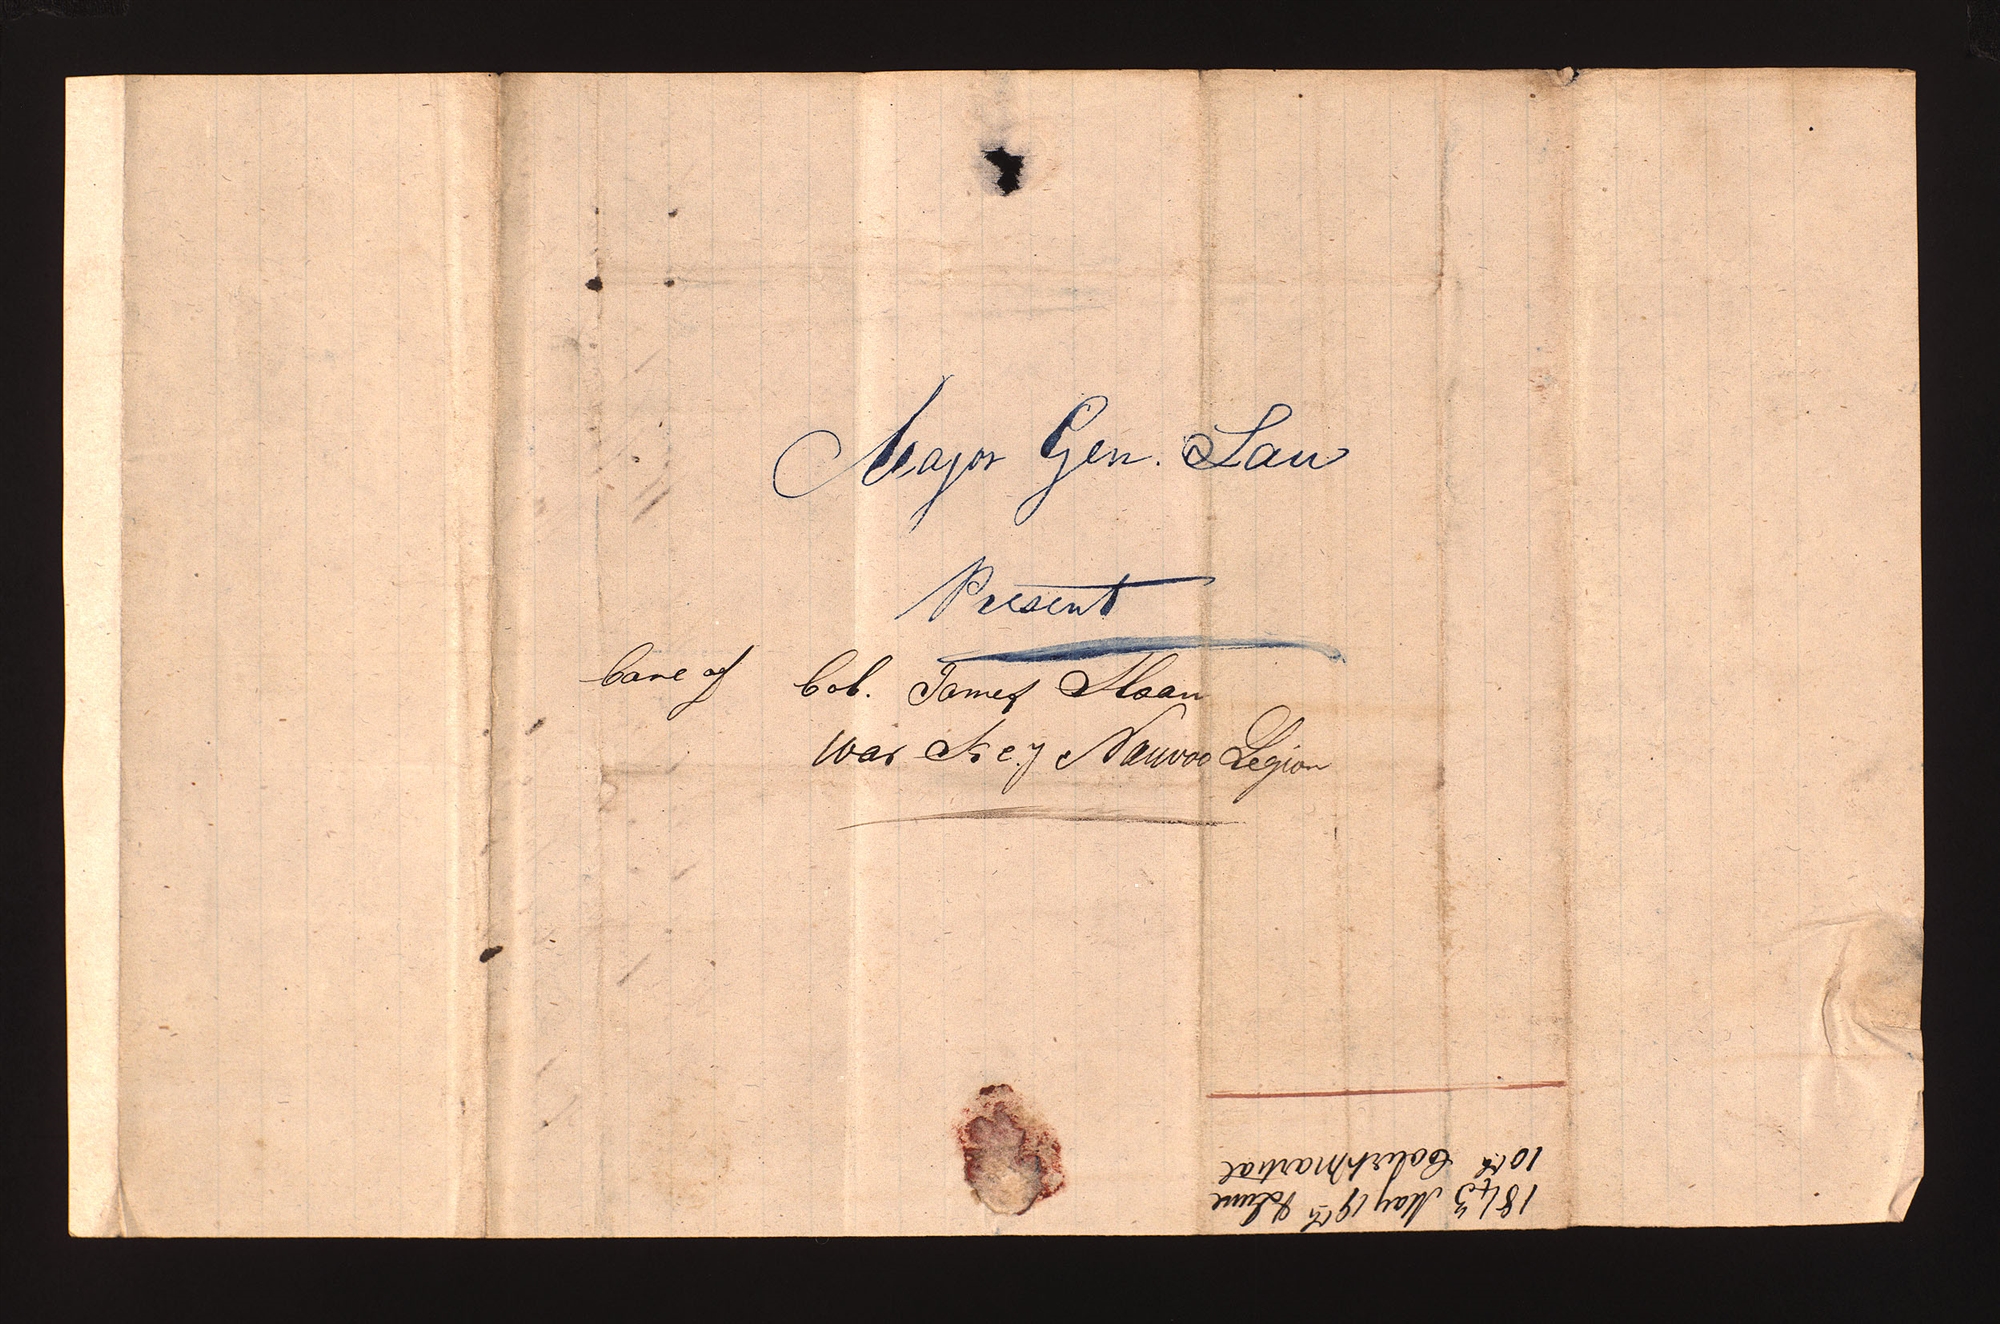 Major Gen. Law
Present
Care of Col. James Sloan
War Secy Nauvoo Legion
1843 May 19th & June
10th Court Martial